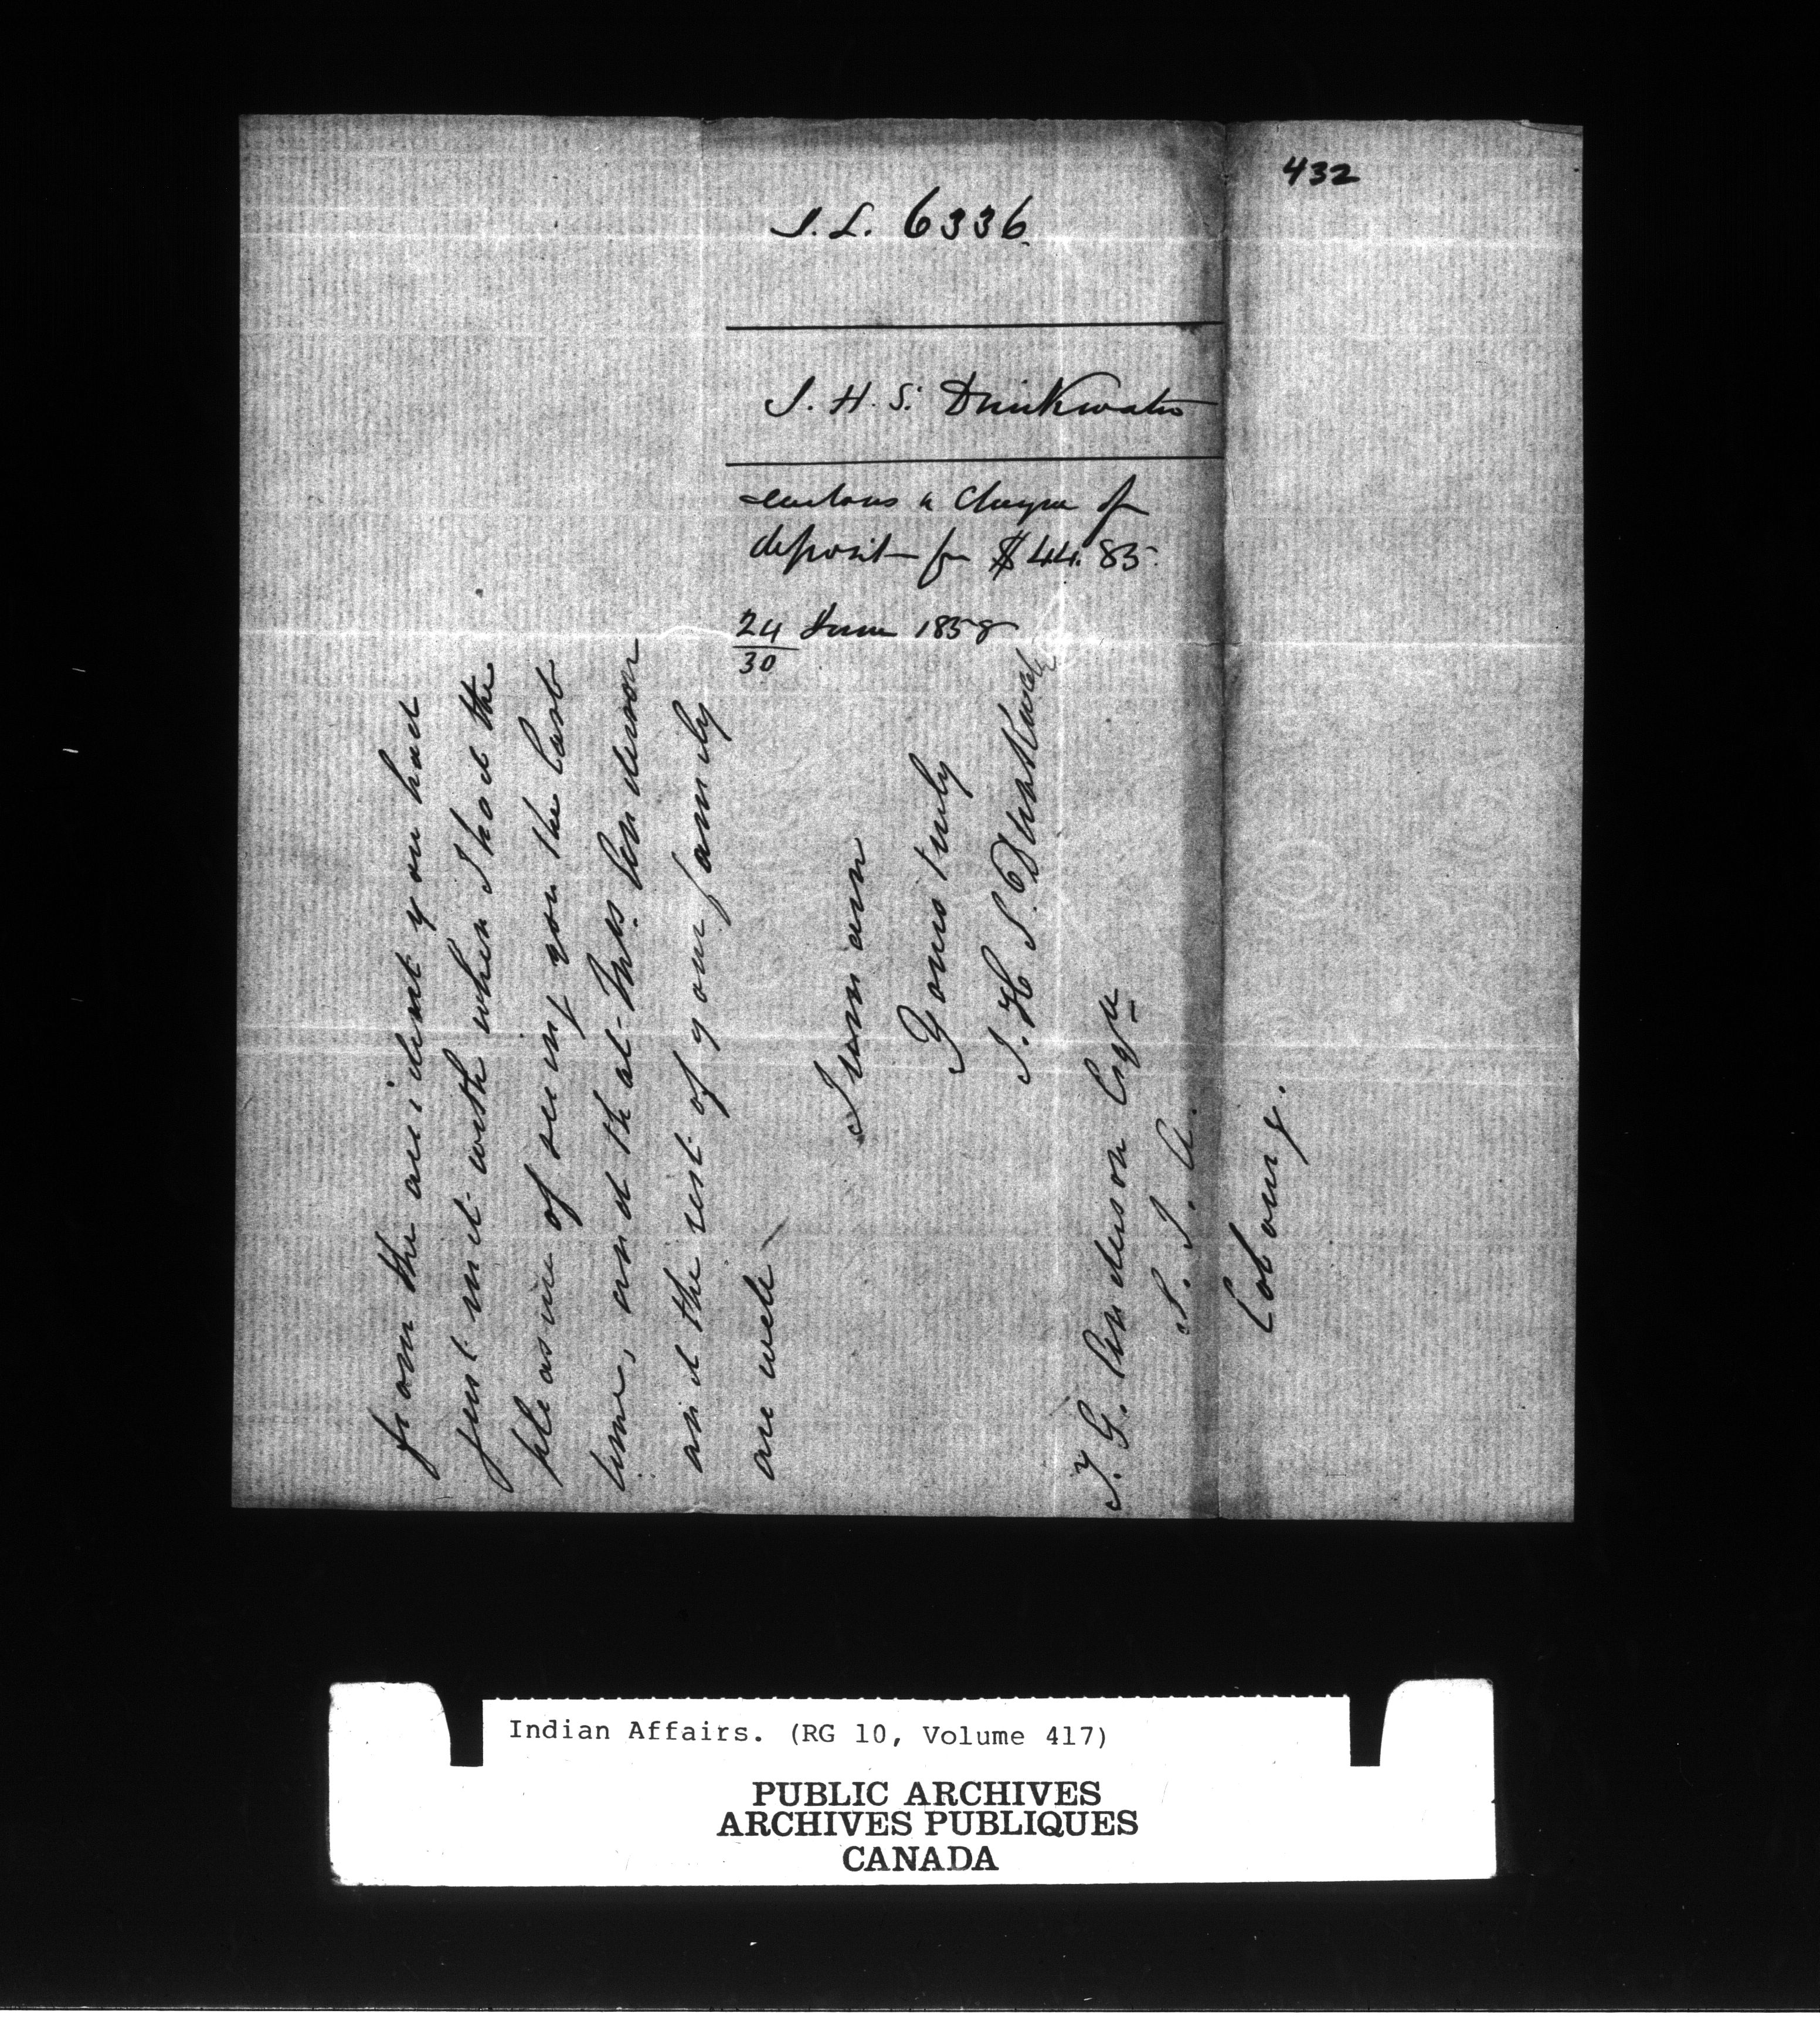 432
I.L. 6336
J. H. S. Drinkwater
encloses a Cheque of
deposit for $44.85
24 June 1858
30
from the accident you had
just met with when I had the
pleasure of seeing you the last
time, and that Mrs. Anderson
and the rest of your family
are well
I remain
Yours truly
J. H. S. Drinkwater
T. G. Anderson Esqr
S. I. A.
Cobourg.
Indian Affairs. (RG 10, Volume 417)
PUBLIC ARCHIVES
ARCHIVES PUBLIQUES
CANADA